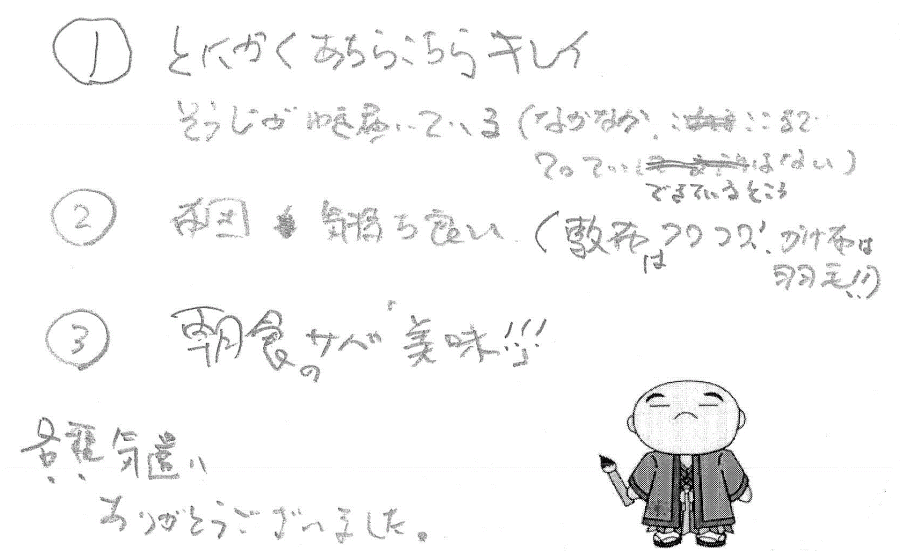 ① とにかくあちらこちらキレイ
そうじがゆき届いている(なかなか、ここまで
やっている できているところ はない)
② 布団 気持ち良い (敷布はフワフワ、がけ布は
羽毛!!)
③ 朝食のサバ 美味!!!
気遣い
ありがとうございました。